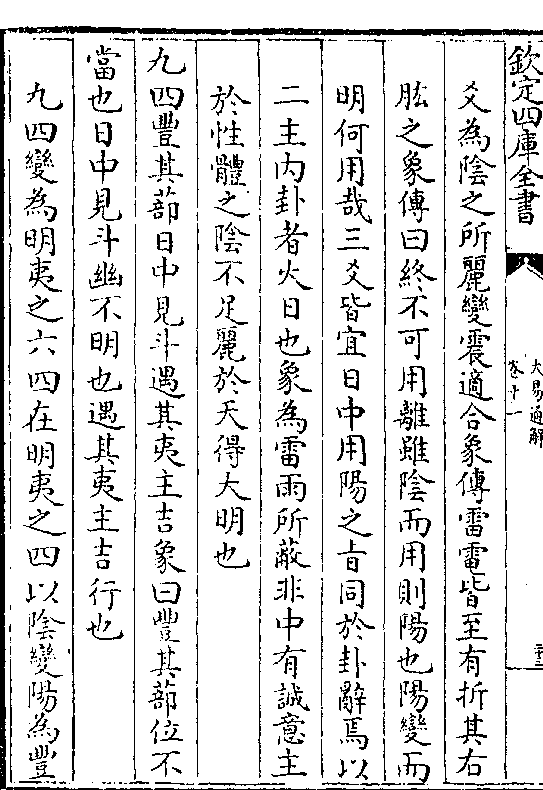 欽定四庫全書
大易通解
卷十一
爻為陰之所麗變震適合象傳雷電皆至有折其右
肱之象傳曰終不可用離雖陰而用則陽也陽變而
明何用哉三爻皆宜日中用陽之旨同於卦辭焉以
二主內卦者火日也象為雷雨所蔽非中有誠意主
於性體之陰不足麗於天得大明也
九四豐其蔀日中見斗遇其夷主吉象曰豐其蔀位不
當也日中見斗幽不明也遇其夷主吉行也
九四變為明夷之六四在明夷之四以陰變陽為豐